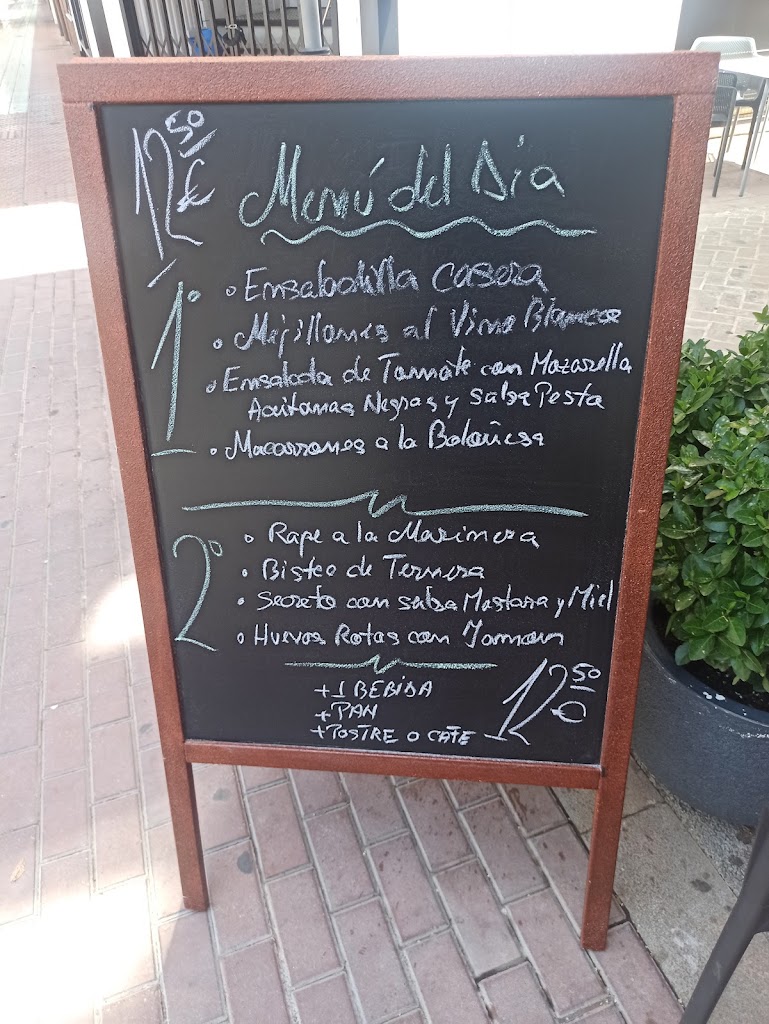 12,50 €
Menú del Dia
1º
• Ensaladilla casera
• Mejillones al Vino Blanco
• Ensalada de Tomate con Mozarella
Aceitunas Negras y salsa Pesto
• Macarrones a la Boloñesa
2º
• Rape a la Marinera
• Bistec de Ternera
• Secreto con salsa Mostaza y Miel
• Huevos Rotos con Jamon
+1 BEBIDA
+PAN
+POSTRE O CAFE - 12,50 €